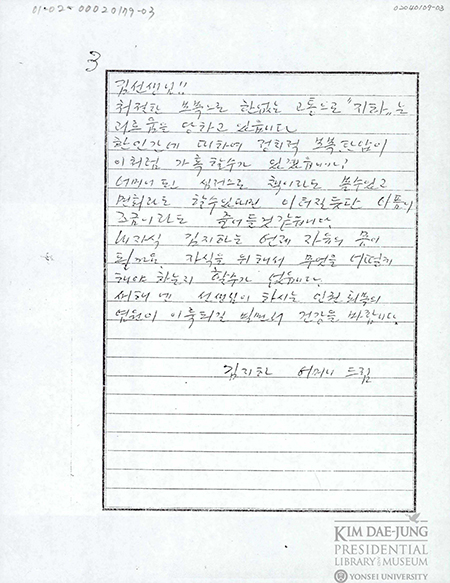 01-02-00020179-03
02040109-03
3
김선생님!!
처절한 보복으로 한없는 고통으로 "지하"는
괴로움을 당하고 있읍니다
한 인간에 대하여 정치적 보복 탄압이
이처럼 가혹할수가 있겠읍니까?
어머니 된 심정으로 책이라도 볼수있고
면회라도 할수있다면 이 찢어질듯한 아픔이
조금이라도 줄어들것 같읍니다.
내자식 김지하는 언제 자유의 몸이
될까요 자식을 위해서 무엇을 어떻게
해야 하는지 할수가 없읍니다.
새해엔 선생님이 하시는 인권 회복의
염원이 이룩되길 빌면서 건강을 바랍니다.
김지하 어머니 드림
KIM DAE-JUNG
PRESIDENTIAL
LIBRARY AND MUSEUM
YONSEI UNIVERSITY